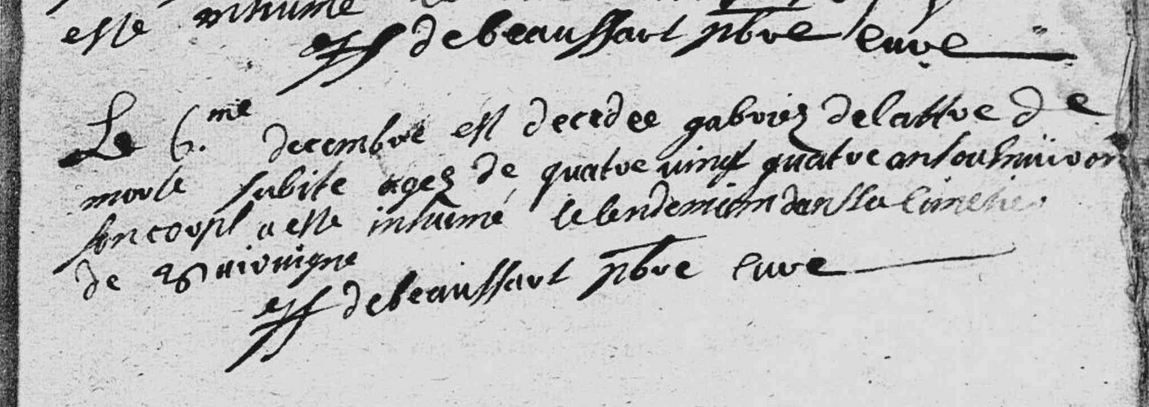 este inhumé
debeaussart pbre cure
Le 6.me decembre est decedee gabriel delattre de
mort subite agez de quatre vingt quatre ans ou environ
son corps a este inhumé le lendemain dans la cimetier
de
debeaussart pbre cure